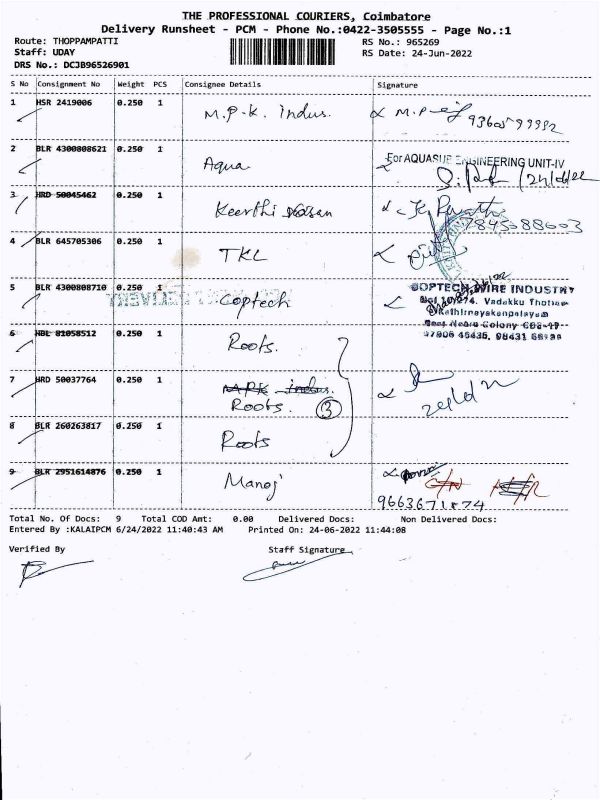 THE PROFESSIONAL COURIERS, Coimbatore
Delivery Runsheet - PCM - Phone No.:0422-3505555 - Page No.:1
Route: THOPPAMPATTI
RS No.: 965269
Staff: UDAY
RS Date: 24-Jun-2022
DRS No.: DCJB96526901
S No Consignment No Weight PCS Consignee Details Signature
1 HSR 2419006 0.250 1 M.P.K. Indus.
2 BLR 4300808621 0.250 1 Aqua For AQUASUB ENGINEERING UNIT-IV
3 HRD 50045462 0.250 1 Keerthi
4 BLR 645705306 0.250 1 TKL
5 BLR 4300808710 0.250 1 Coptech COPTECH WIRE INDUSTRY
Vadakku Thottam
Kathirnayakanpalayam
6 HBL 81058512 0.250 1 Roots.
7 HRD 50037764 0.250 1 MPK indus.
Roots. 3
8 BLR 260263817 0.250 1 Roots
9 BLR 2951614876 0.250 1 Manoj
Total No. Of Docs: 9 Total COD Amt: 0.00 Delivered Docs: Non Delivered Docs:
Entered By :KALAIPCM 6/24/2022 11:40:43 AM Printed On: 24-06-2022 11:44:08
Verified By Staff Signature